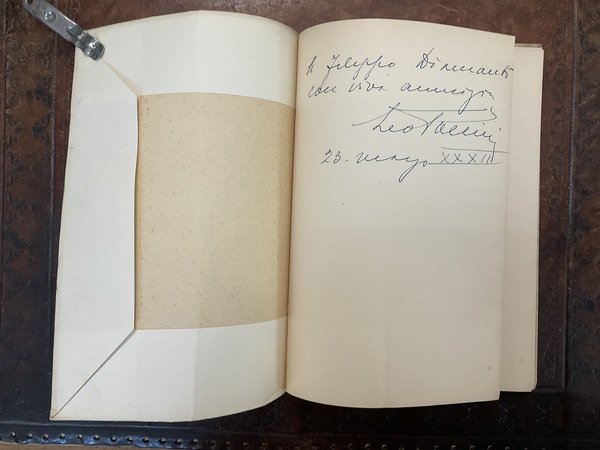 A Filippo Diamanti
con viva amicizia
Leo Pollini
23. maggio XXXIII